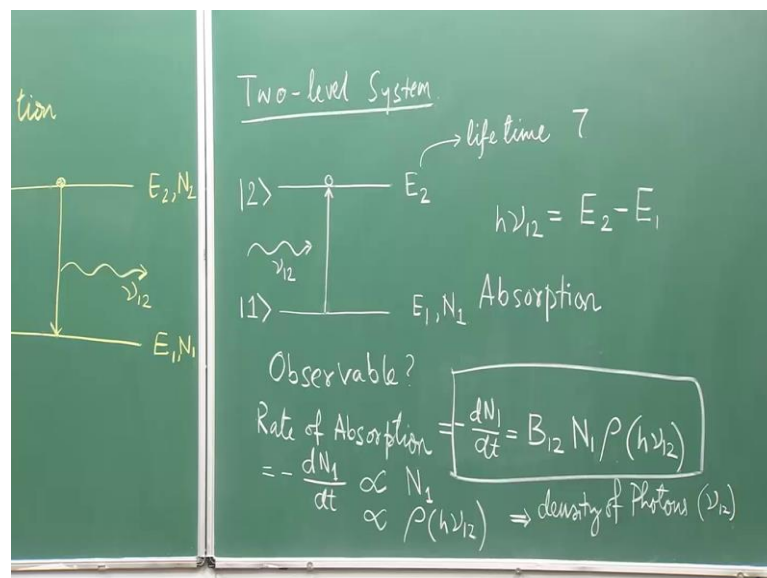 tion
E₂,N₂
ν₁₂
E₁,N₁
Two-level System
life time τ
|2⟩ E₂
hν₁₂ = E₂-E₁
ν₁₂
|1⟩ E₁,N₁ Absorption
Observable?
Rate of Absorption = -dN₁/dt = B₁₂ N₁ ρ(hν₁₂)
= -dN₁/dt ∝ N₁
∝ ρ(hν₁₂) ⇒ density of Photons (ν₁₂)